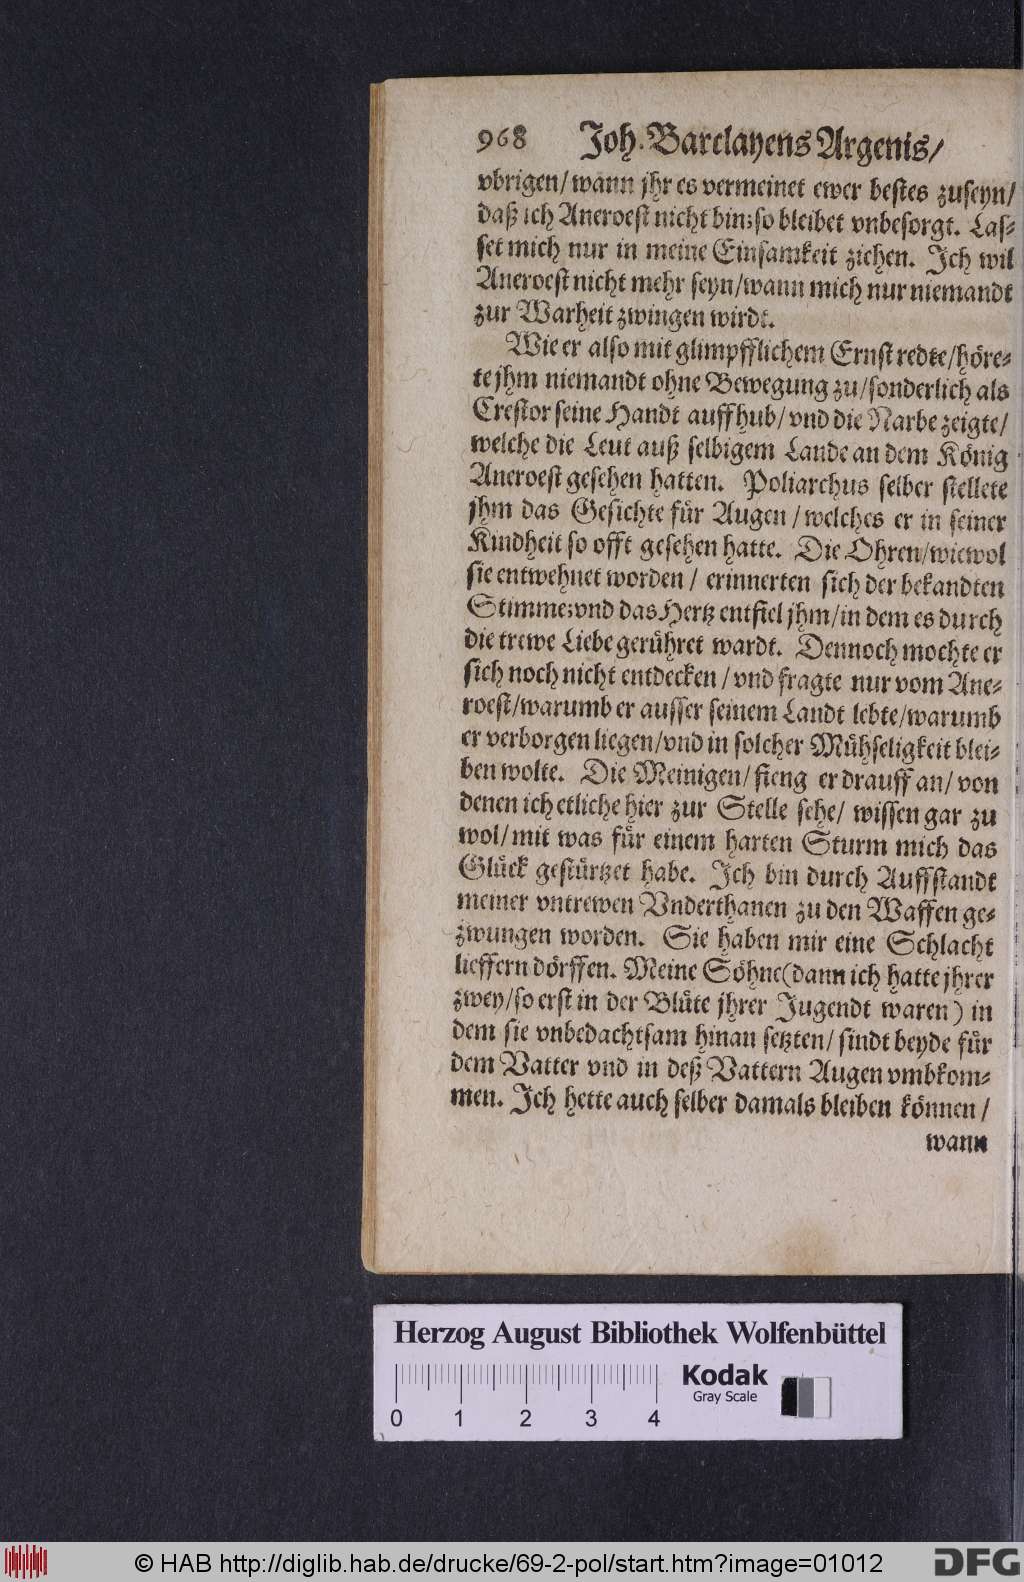 968 Joh. Barclayens Argenis/
vbrigen/ wann jhr es vermeinet ewer bestes zuseyn/
daß ich Aneroest nicht bin; so bleibet vnbesorgt. Las-
set mich nur in meine Einsamkeit ziehen. Ich wil
Aneroest nicht mehr seyn/ wann mich nur niemandt
zur Warheit zwingen wirdt.
Wie er also mit glimpfflichem Ernst redte/ höre-
te jhm niemandt ohne Bewegung zu/ sonderlich als
Crestor seine Handt auffhub/ vnd die Narbe zeigte/
welche die Leut auß selbigem Lande an dem König
Aneroest gesehen hatten. Poliarchus selber stellete
jhm das Gesichte für Augen/ welches er in seiner
Kindheit so offt gesehen hatte. Die Ohren/ wiewol
sie entwehnet worden/ erinnerten sich der bekandten
Stimme; vnd das Hertz entfiel jhm/ in dem es durch
die trewe Liebe gerühret wardt. Dennoch mochte er
sich noch nicht entdecken/ vnd fragte nur vom Ane-
roest/ warumb er ausser seinem Landt lebte/ warumb
er verborgen liegen/ vnd in solcher Mühseligkeit blei-
ben wolte. Die Meinigen/ fieng er drauff an/ von
denen ich etliche hier zur Stelle sehe/ wissen gar zu
wol/ mit was für einem harten Sturm mich das
Glück gestürtzet habe. Ich bin durch Auffstandt
meiner vntrewen Vnderthanen zu den Waffen ge-
zwungen worden. Sie haben mir eine Schlacht
lieffern dörffen. Meine Söhne (dann ich hatte jhrer
zwey/ so erst in der Blüte jhrer Jugendt waren) in
dem sie vnbedachtsam hinan setzten/ sindt beyde für
dem Vatter vnd in deß Vattern Augen vmbkom-
men. Ich hette auch selber damals bleiben können/
wann
Herzog August Bibliothek Wolfenbüttel
0 1 2 3 4
Kodak
Gray Scale
© HAB http://diglib.hab.de/drucke/69-2-pol/start.htm?image=01012
DFG